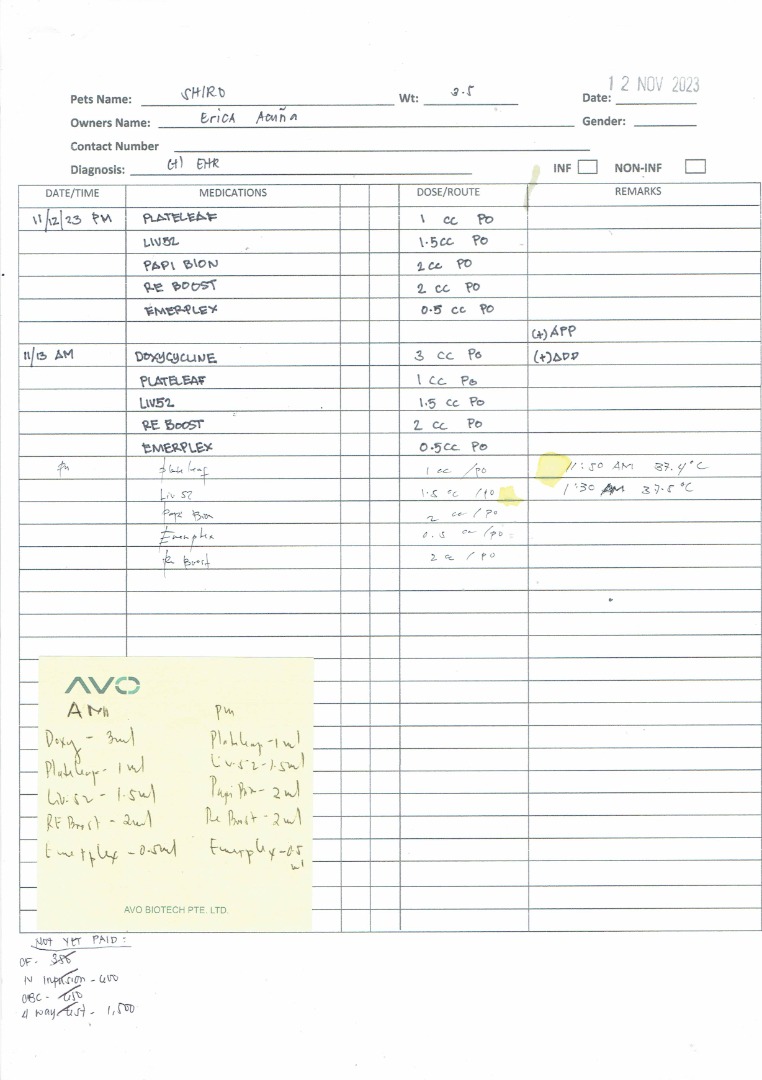 12 NOV 2023
Pets Name: SHIRO Wt: 3.5 Date:
Owners Name: Erica Acuña Gender:
Contact Number
Diagnosis: (+) EHR INF NON-INF
DATE/TIME MEDICATIONS DOSE/ROUTE REMARKS
11/12/23 PM PLATELEAF 1 cc PO
LIV52 1.5cc PO
PAPI BION 2cc PO
RE BOOST 2 cc PO
EMERPLEX 0.5 cc PO
(+) APP
11/13 AM DOXYCYCLINE 3 cc PO (+)
PLATELEAF 1 cc PO
LIV52 1.5 cc PO
RE BOOST 2 cc PO
EMERPLEX 0.5cc PO
pm plateleaf 1 cc /po 11:50 AM 37.4°C
Liv 52 1.5 cc /po 1:30 37.5°C
Papi Bion 2 cc / po
Emerplex 0.5 cc / po
Re Boost 2 cc / po
AVO
AM pm
Doxy - 3ml Plateleaf - 1 ml
Plateleaf - 1 ml Liv.52 - 1.5ml
Liv.52 - 1.5ml Papi Bion - 2ml
RE Boost - 2ml Re Boost - 2ml
Emerplex - 0.5ml Emerplex - 0.5
ml
AVO BIOTECH PTE. LTD.
NOT YET PAID:
OF - 350
IV infusion - 400
CBC - 450
4 way test - 1,500